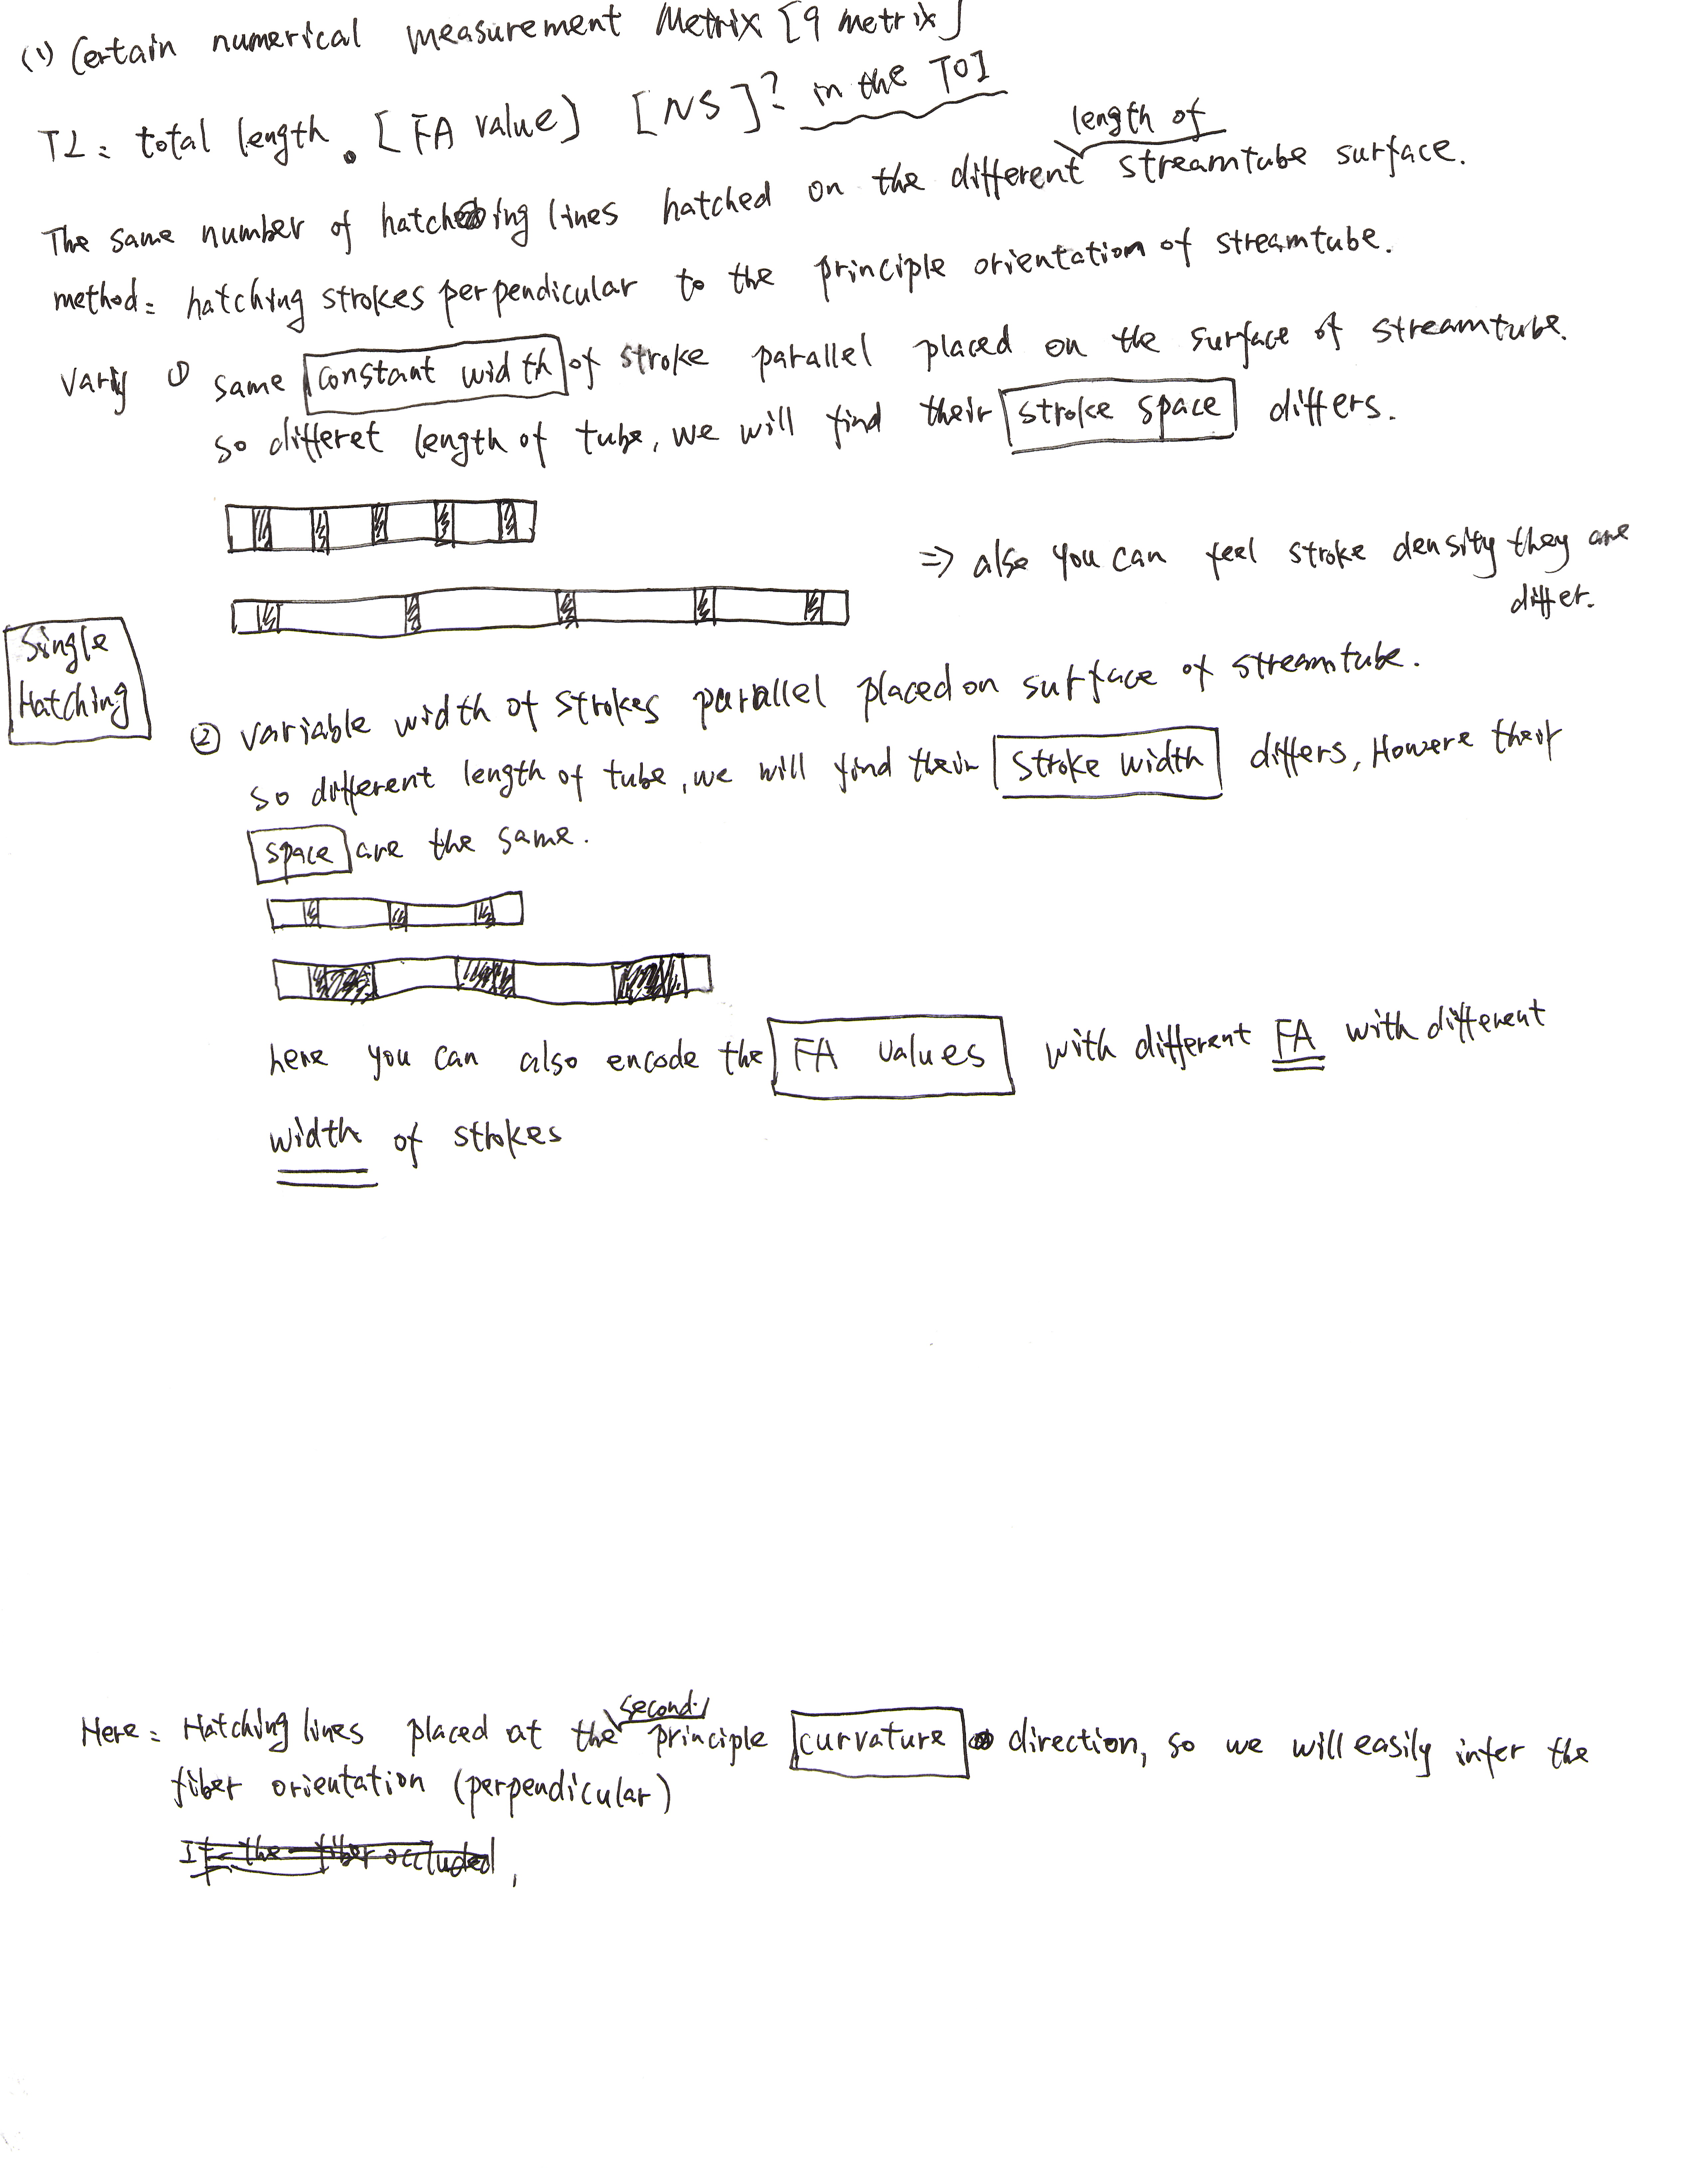 (1) Certain numerical measurement Metrix [9 metrix]
TL: total length. [FA value] [NS]? in the TOI
length of
The same number of hatching lines hatched on the different streamtube surface.
method: hatching strokes perpendicular to the principle orientation of streamtube.
Vary ① same constant width of stroke parallel placed on the surface of streamtube.
so differet length of tube, we will find their stroke space differs.
⇒ also you can feel stroke density they are
differ.
Single
Hatching
② variable width of strokes parallel placed on surface of streamtube.
so different length of tube, we will find their stroke width differs, Howere their
space are the same.
here you can also encode the FA values with different FA with different
width of strokes
second
Here: Hatching lines placed at the principle curvature direction, so we will easily infer the
fiber orientation (perpendicular)
If the fiber occluded,